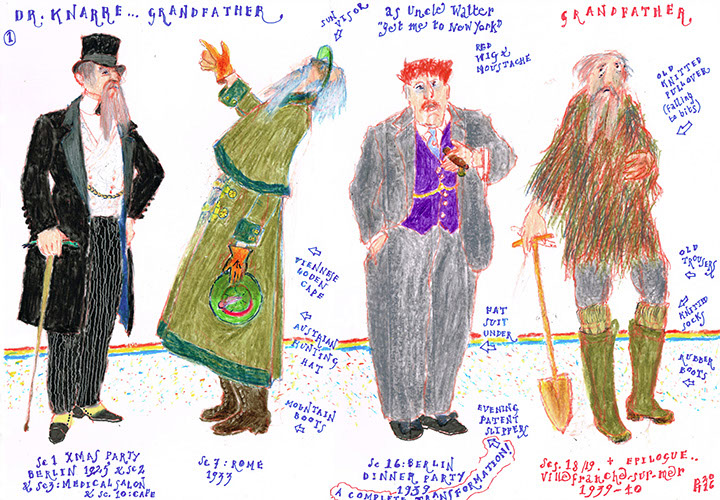 DR. KNARRE... GRANDFATHER
1
SUN
VISOR
as Uncle Walter
"get me to New York"
RED
WIG &
MOUSTACHE
GRANDFATHER
OLD
KNITTED
PULLOVER
(falling
to bits)
VIENNESE
LODEN
CAPE
AUSTRIAN
HUNTING
HAT
MOUNTAIN
BOOTS
FAT
SUIT
UNDER
EVENING
PATENT
SLIPPERS
OLD
TROUSERS
KNITTED
SOCKS
RUBBER
BOOTS
Sc 1 XMAS PARTY
BERLIN 1925 & Sc2
& Sc3: MEDICAL SALON
& Sc. 10: CAFE
Sc 7: ROME
1933
Sc 16: BERLIN
DINNER PARTY
1939
A COMPLETE TRANSFORMATION!
Scs. 18/19. + EPILOGUE..
Villefranche-sur-mer
1939-40